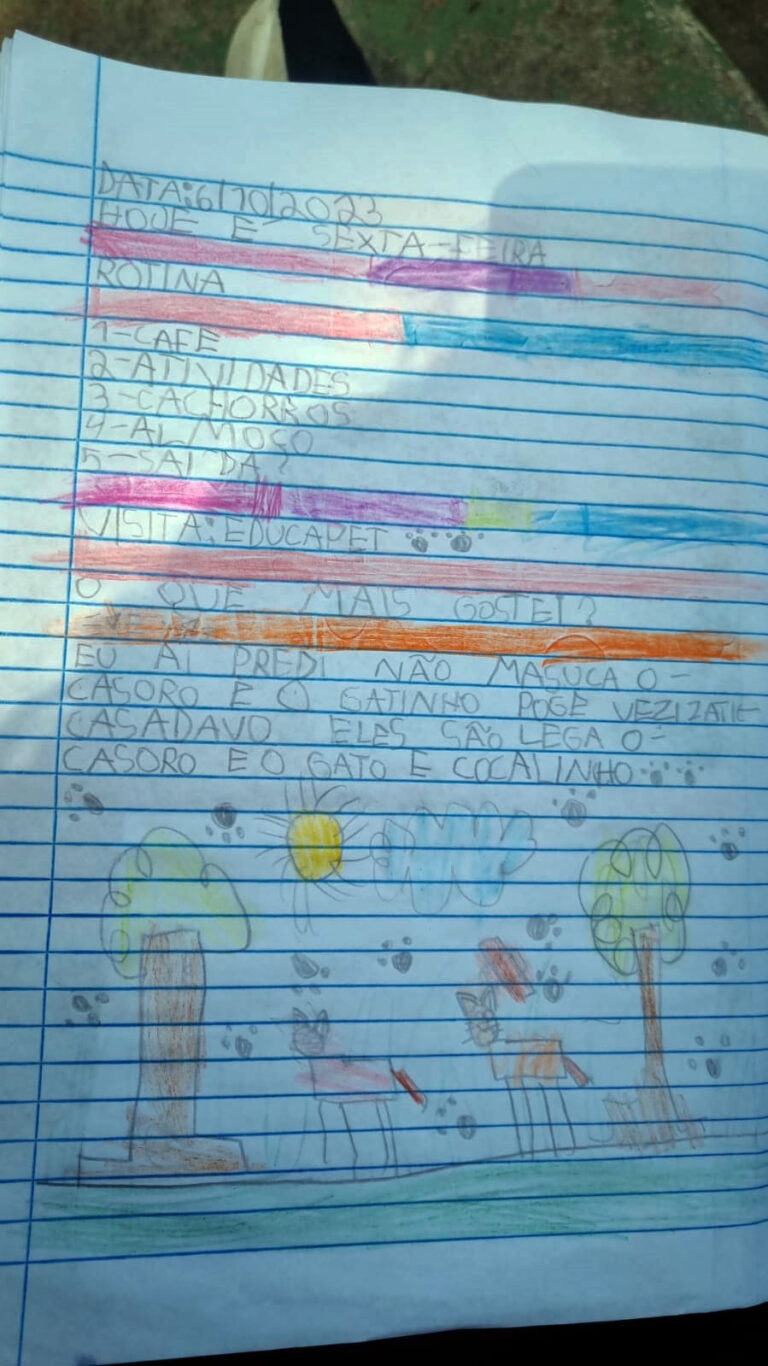 DATA:6/10/2023
HOJE E SEXTA-FEIRA
ROTINA
1-CAFE
2-ATIVIDADES
3-CACHORROS
4-ALMOSO
5-SAIDA?
VISITA:EDUCAPET
O QUE MAIS GOSTEI?
EU AI PREDI NÃO MASUCA O-
CASORO E O GATINHO POGE VEZIZATI-
CASADAVO ELES SÃO LEGA O-
CASORO E O GATO E COCALINHO